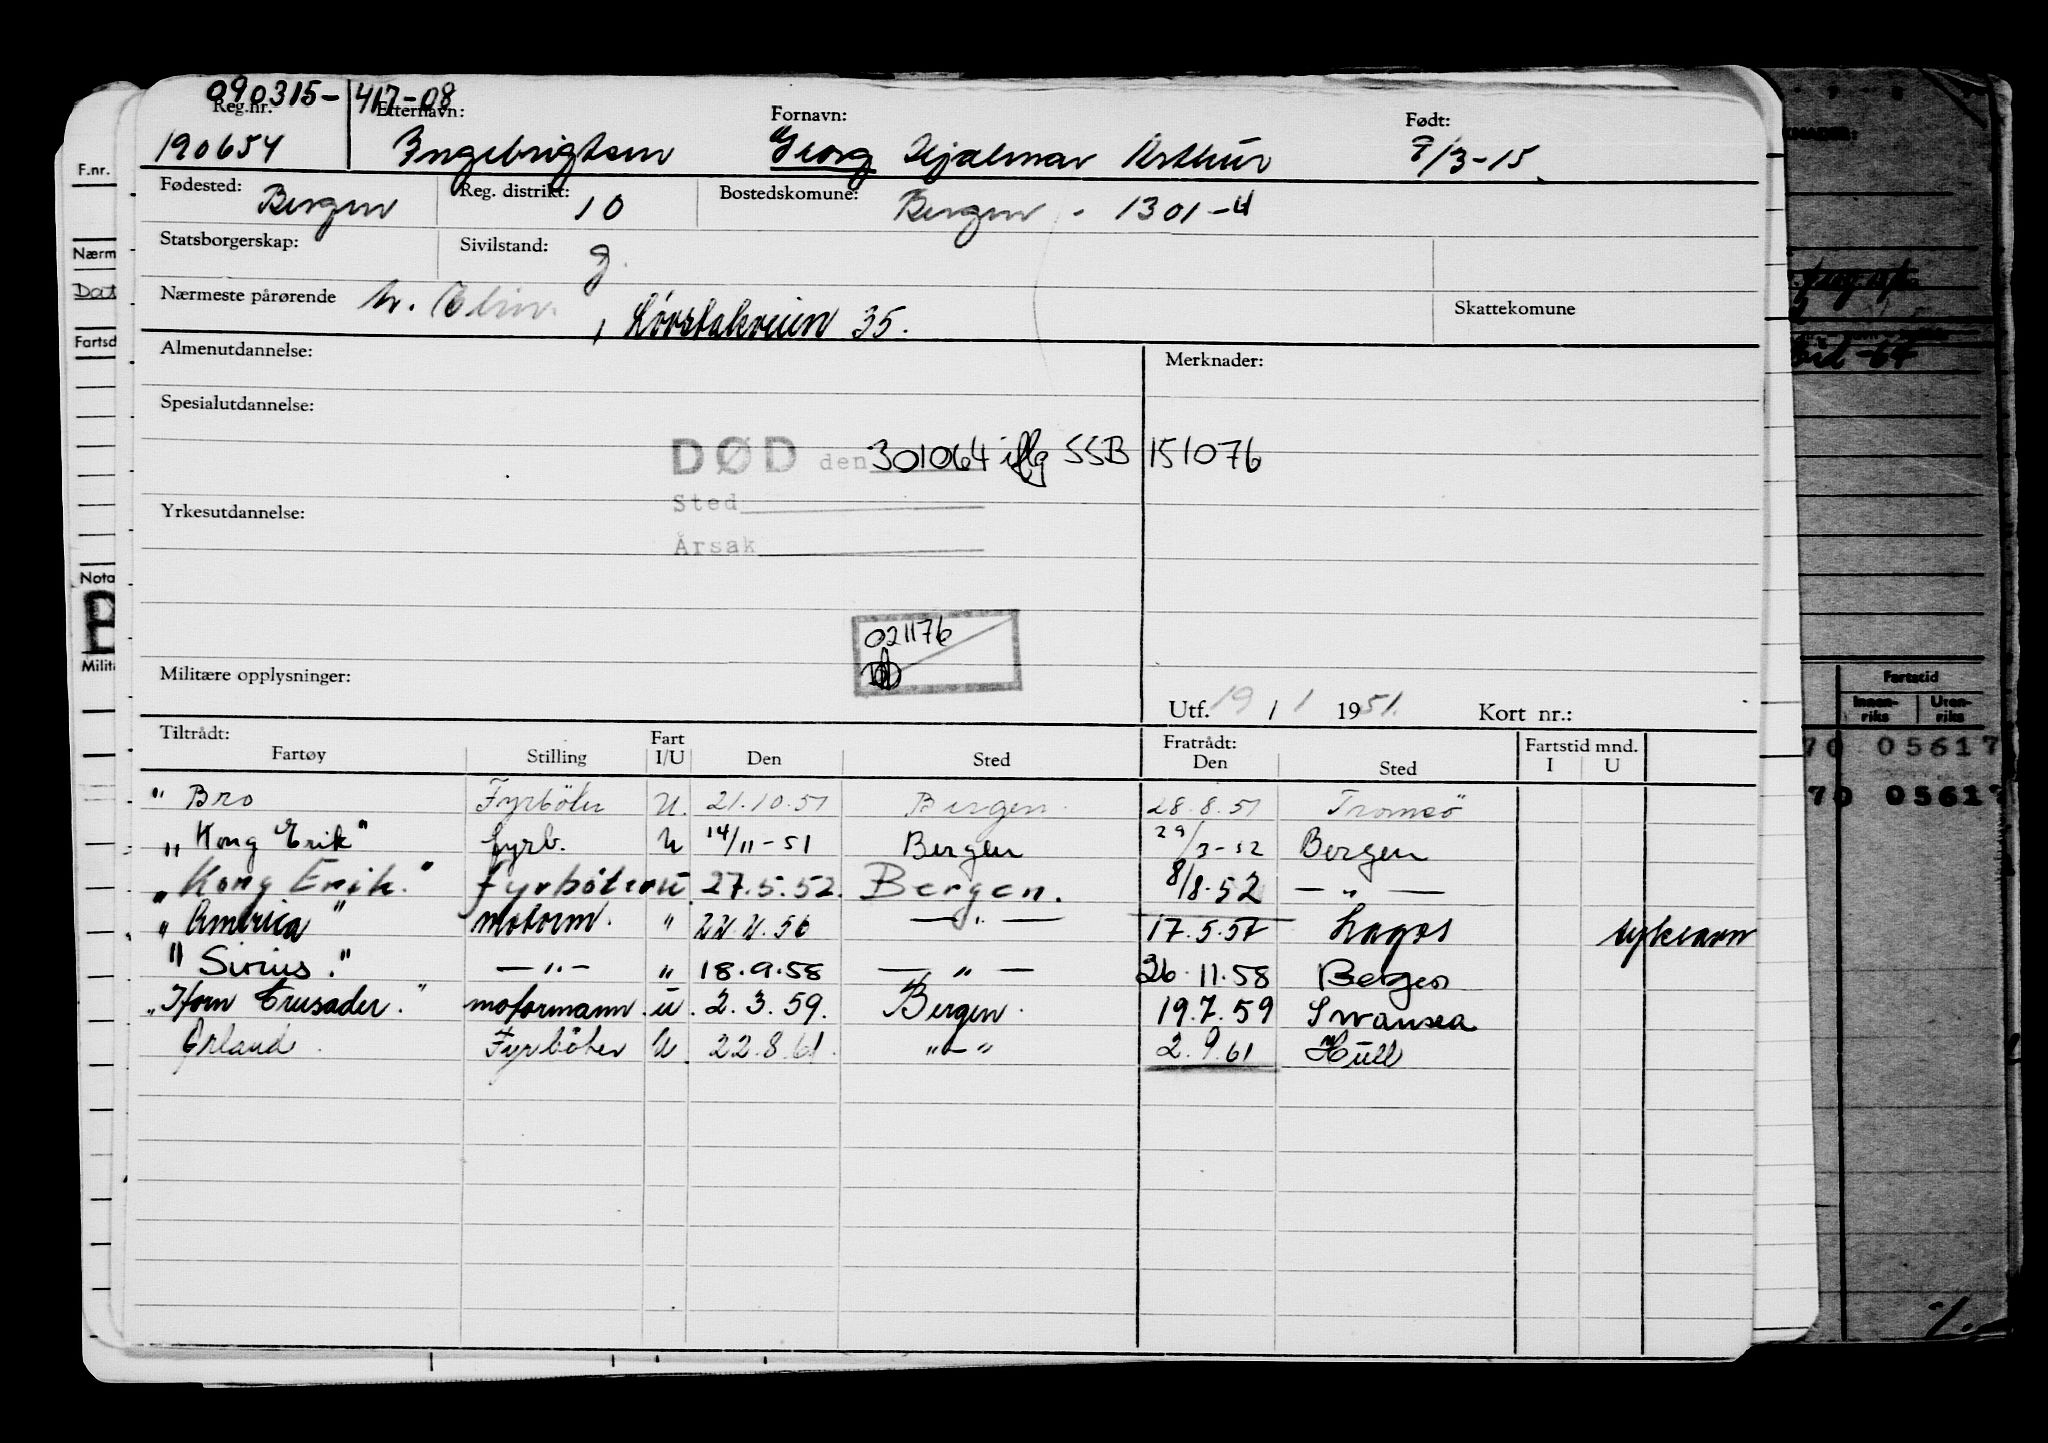 090315-417-08
Reg.nr. Etternavn: Fornavn: Født:
190654 Ingebrigtsen Georg Hjalmar Arthur 9/3-15.
Fødested: Bergen Reg. distrikt: 10 Bostedskomune: Bergen - 1301-4
Statsborgerskap: Sivilstand: g.
Nærmeste pårørende , Løvstakveien 35. Skattekomune
Almenutdannelse: Merknader:
Spesialutdannelse:
DØD den 301064 iflg SSB 151076
Sted
Yrkesutdannelse:
Årsak
021176
Militære opplysninger:
Utf. 19 / 1 1951. Kort nr.:
Tiltrådt: Fart Fratrådt: Fartstid mnd.
Fartøy Stilling I/U Den Sted Den Sted I U
" Bro Fyrböter U. 21.10.51 Bergen. 28.8.51 Tromsö
" Kong Erik" fyrb. U 14/11-51 Bergen 29/3-52 Bergen
" Kong Erik." fyrböter U 27.5.52. Bergen. 8/8.52 — " —
" America " motorm. " 22.4.56 — " — 17.5.57 Lagos
" Sirius." — " — " 18.9.58 — " — 26.11.58 Bergen
" Horn Crusader." motormann. u. 2.3.59. Bergen. 19.7.59 Swansea
Ørland. Fyrböter U. 22.8.61. "-" 2.9.61 Hull
F.nr.
Nærm
Dat
Fartsd
Nota
D
Milit
KNADER:
-64
Fartstid
Innen-
riks
Uten-
riks
70 05617
70 05617